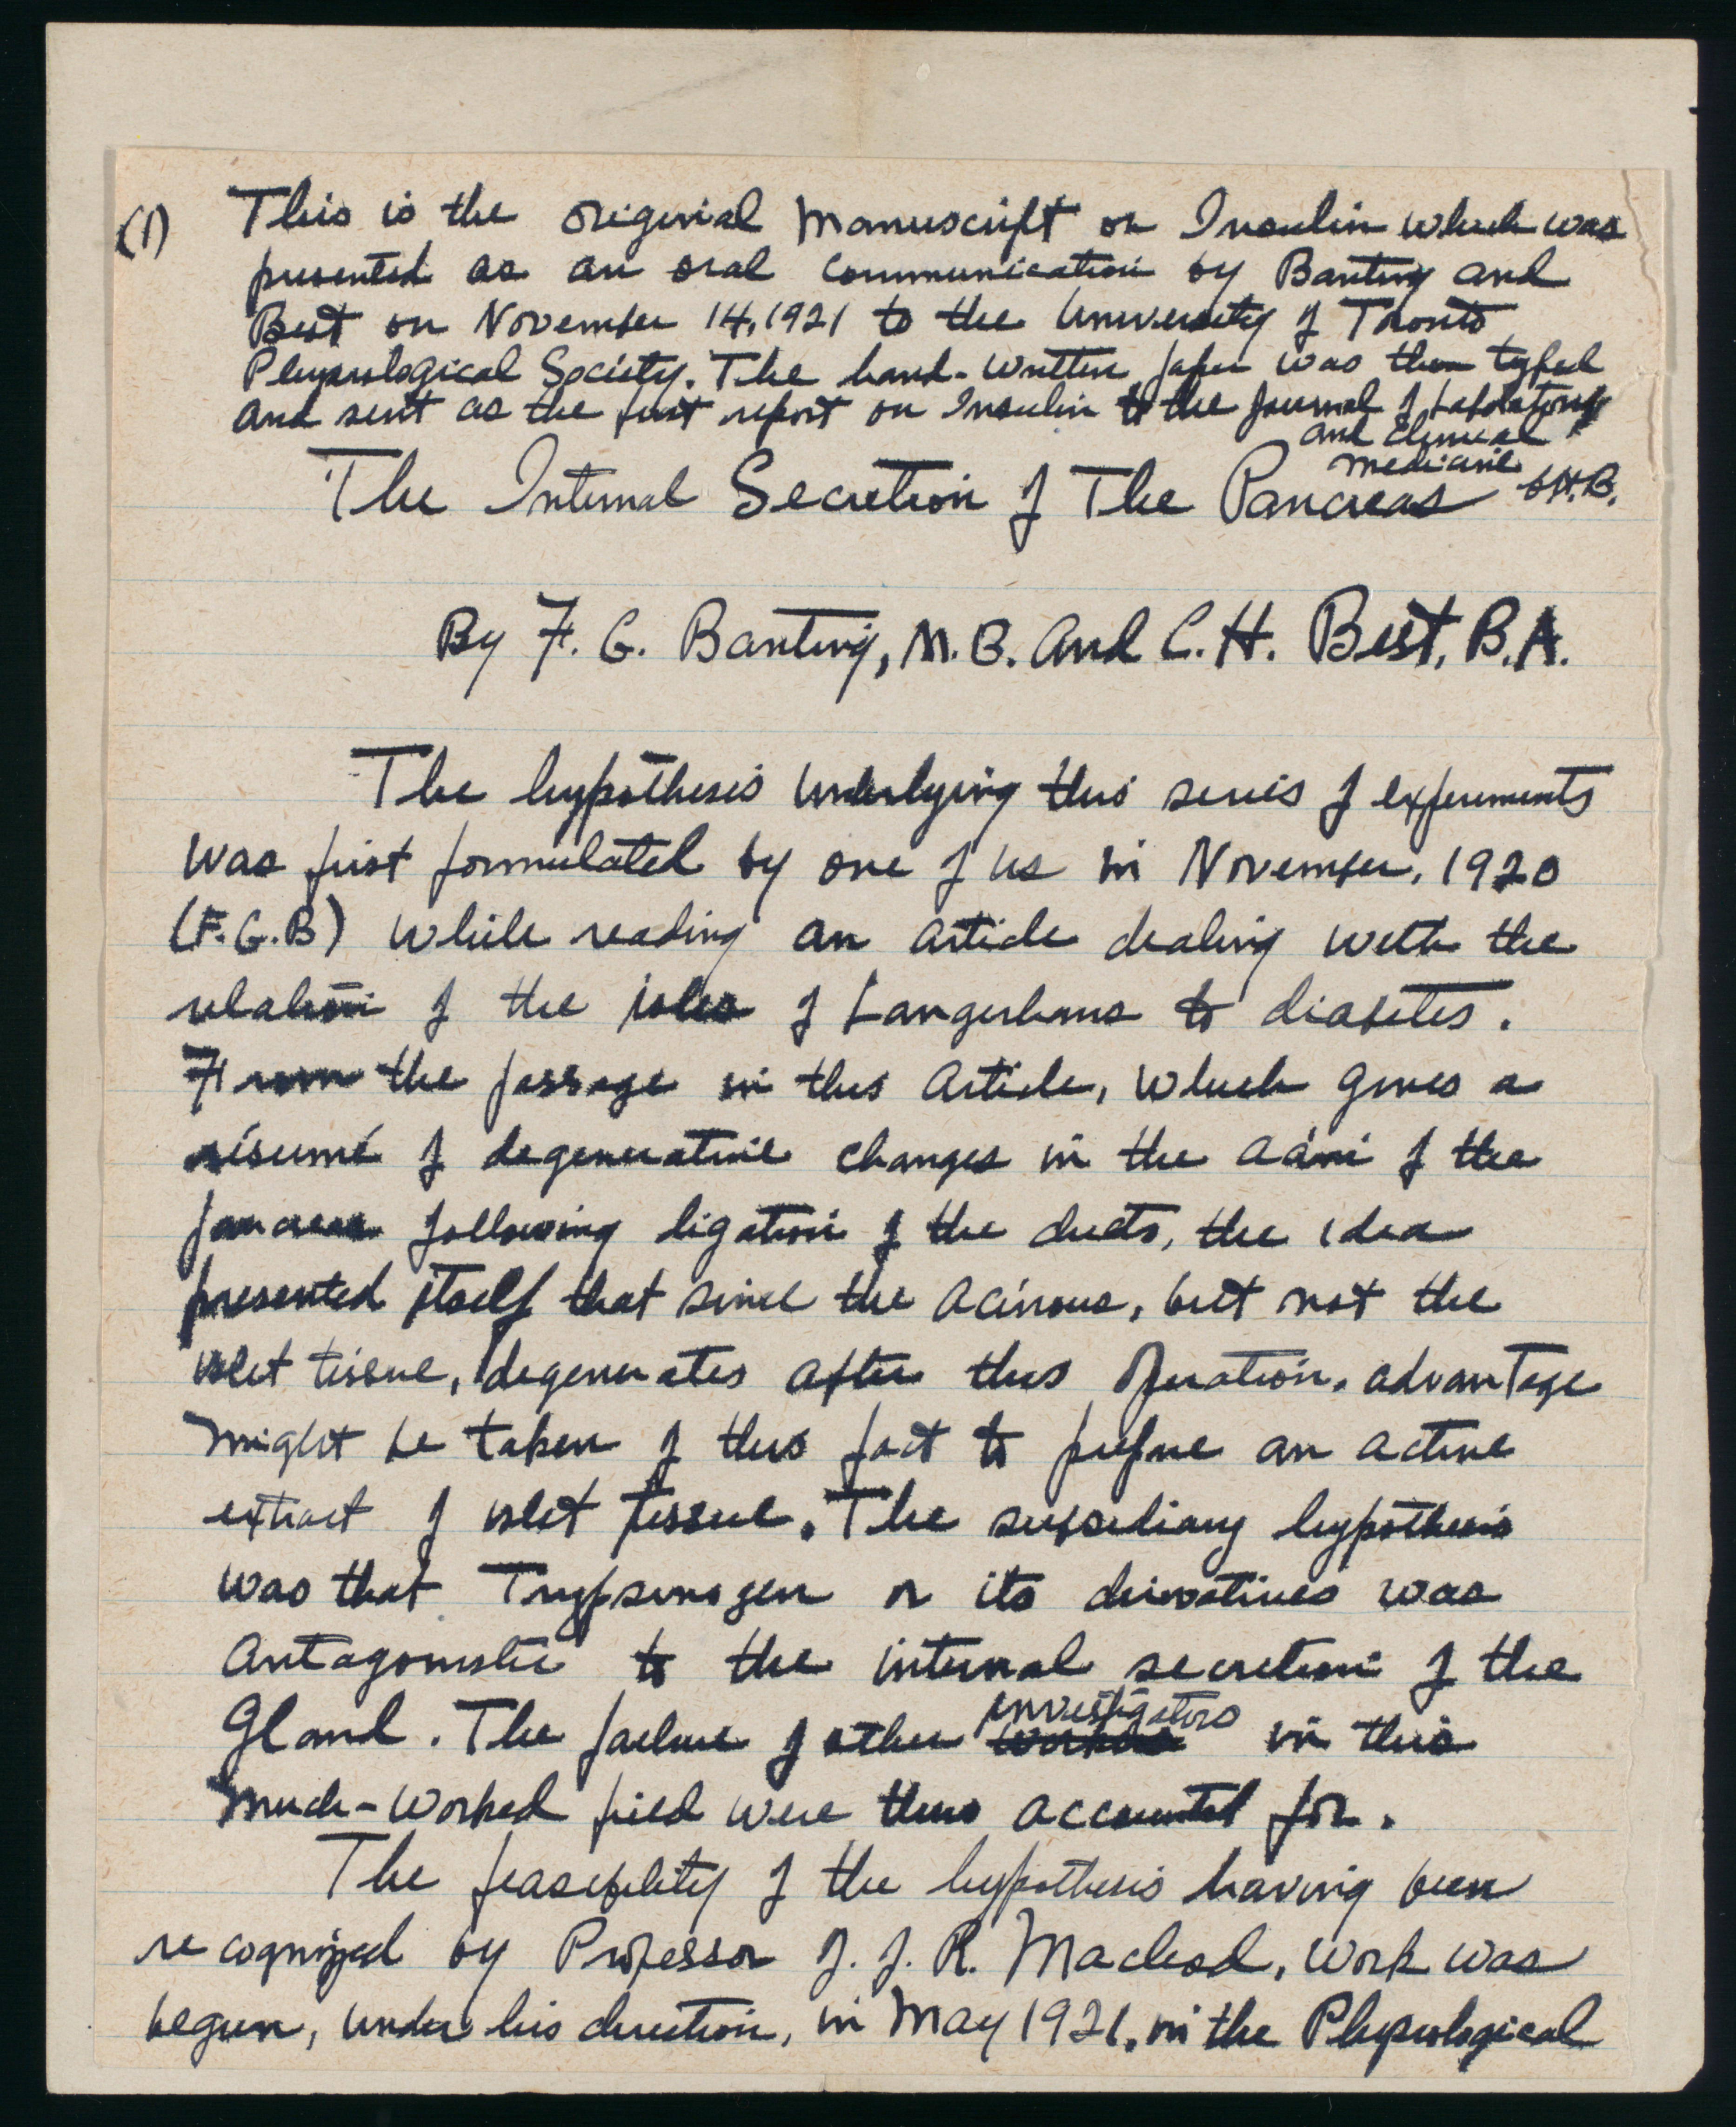 (1) This is the origenial Manuscript on Insulin which was
presented as an oral communication by Banting and
Best on November 14, 1921 to the University of Toronto
Physiological Society. The hand-written paper was then typed
and sent as the first report on Insulin to the Journal of Laboratory
and Clinical
Medicine. C.H.B.
The Internal Secretion of The Pancreas
By F. G. Banting, M.B. and C. H. Best, B.A.
The hypothesis underlying this series of experiments
was first formulated by one of us in November, 1920
(F.G.B) while reading an article dealing with the
relation of the isles of Langerhans to diabetes.
From the passage in this article, which gives a
résumé of degenerative changes in the acini of the
pancreas following ligation of the ducts, the idea
presented itself that since the acinous, but not the
islet tissue, degenerates after this operation, advantage
might be taken of this fact to prepare an active
extract of islet tissue. The subsediary hypothesis
was that Trypsinogen or its derivatives was
antagonistic to the internal secretion of the
Gland. The failure of other workers investigators in this
much-worked field were thus accounted for.
The feasibility of the hypothesis having been
recognized by Professor J. J. R. Macleod, work was
begun, under his direction, in May 1921, in the Physiological